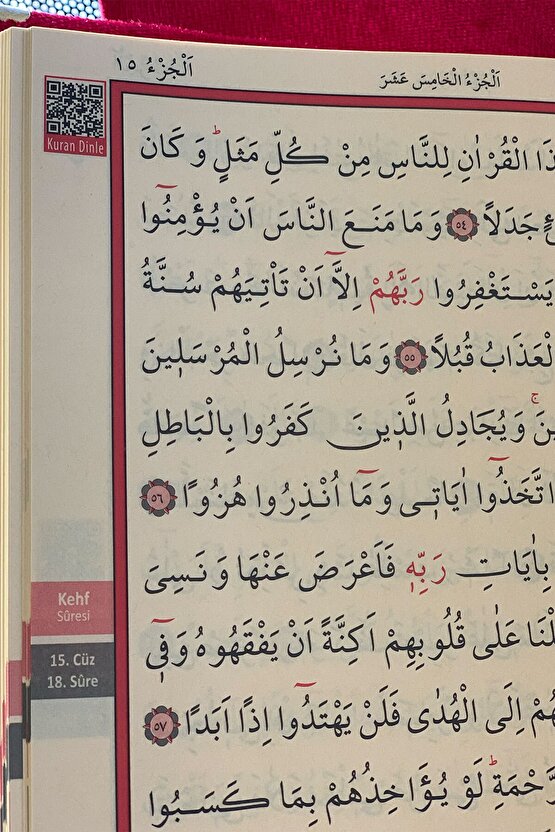 اَلْجُزْءُ الْخَامِسَ عَشَرَ
اَلْجُزْءُ ١٥
Kuran Dinle
الْقُرْاٰنِ لِلنَّاسِ مِنْ كُلِّ مَثَلٍۜ وَكَانَ
جَدَلًا ﴿٥٤﴾ وَمَا مَنَعَ النَّاسَ اَنْ يُؤْمِنُٓوا
يَسْتَغْفِرُوا رَبَّهُمْ اِلَّٓا اَنْ تَأْتِيَهُمْ سُنَّةُ
الْعَذَابُ قُبُلًا ﴿٥٥﴾ وَمَا نُرْسِلُ الْمُرْسَل۪ينَ
وَيُجَادِلُ الَّذ۪ينَ كَفَرُوا بِالْبَاطِلِ
اتَّخَذُٓوا اٰيَات۪ي وَمَٓا اُنْذِرُوا هُزُوًا ﴿٥٦﴾
بِاٰيَاتِ رَبِّه۪ فَاَعْرَضَ عَنْهَا وَنَسِيَ
عَلٰى قُلُوبِهِمْ اَكِنَّةً اَنْ يَفْقَهُوهُ وَف۪ٓي
اِلَى الْهُدٰى فَلَنْ يَهْتَدُٓوا اِذًا اَبَدًا ﴿٥٧﴾
لَوْ يُؤَاخِذُهُمْ بِمَا كَسَبُوا
Kehf
Sûresi
15. Cüz
18. Sûre